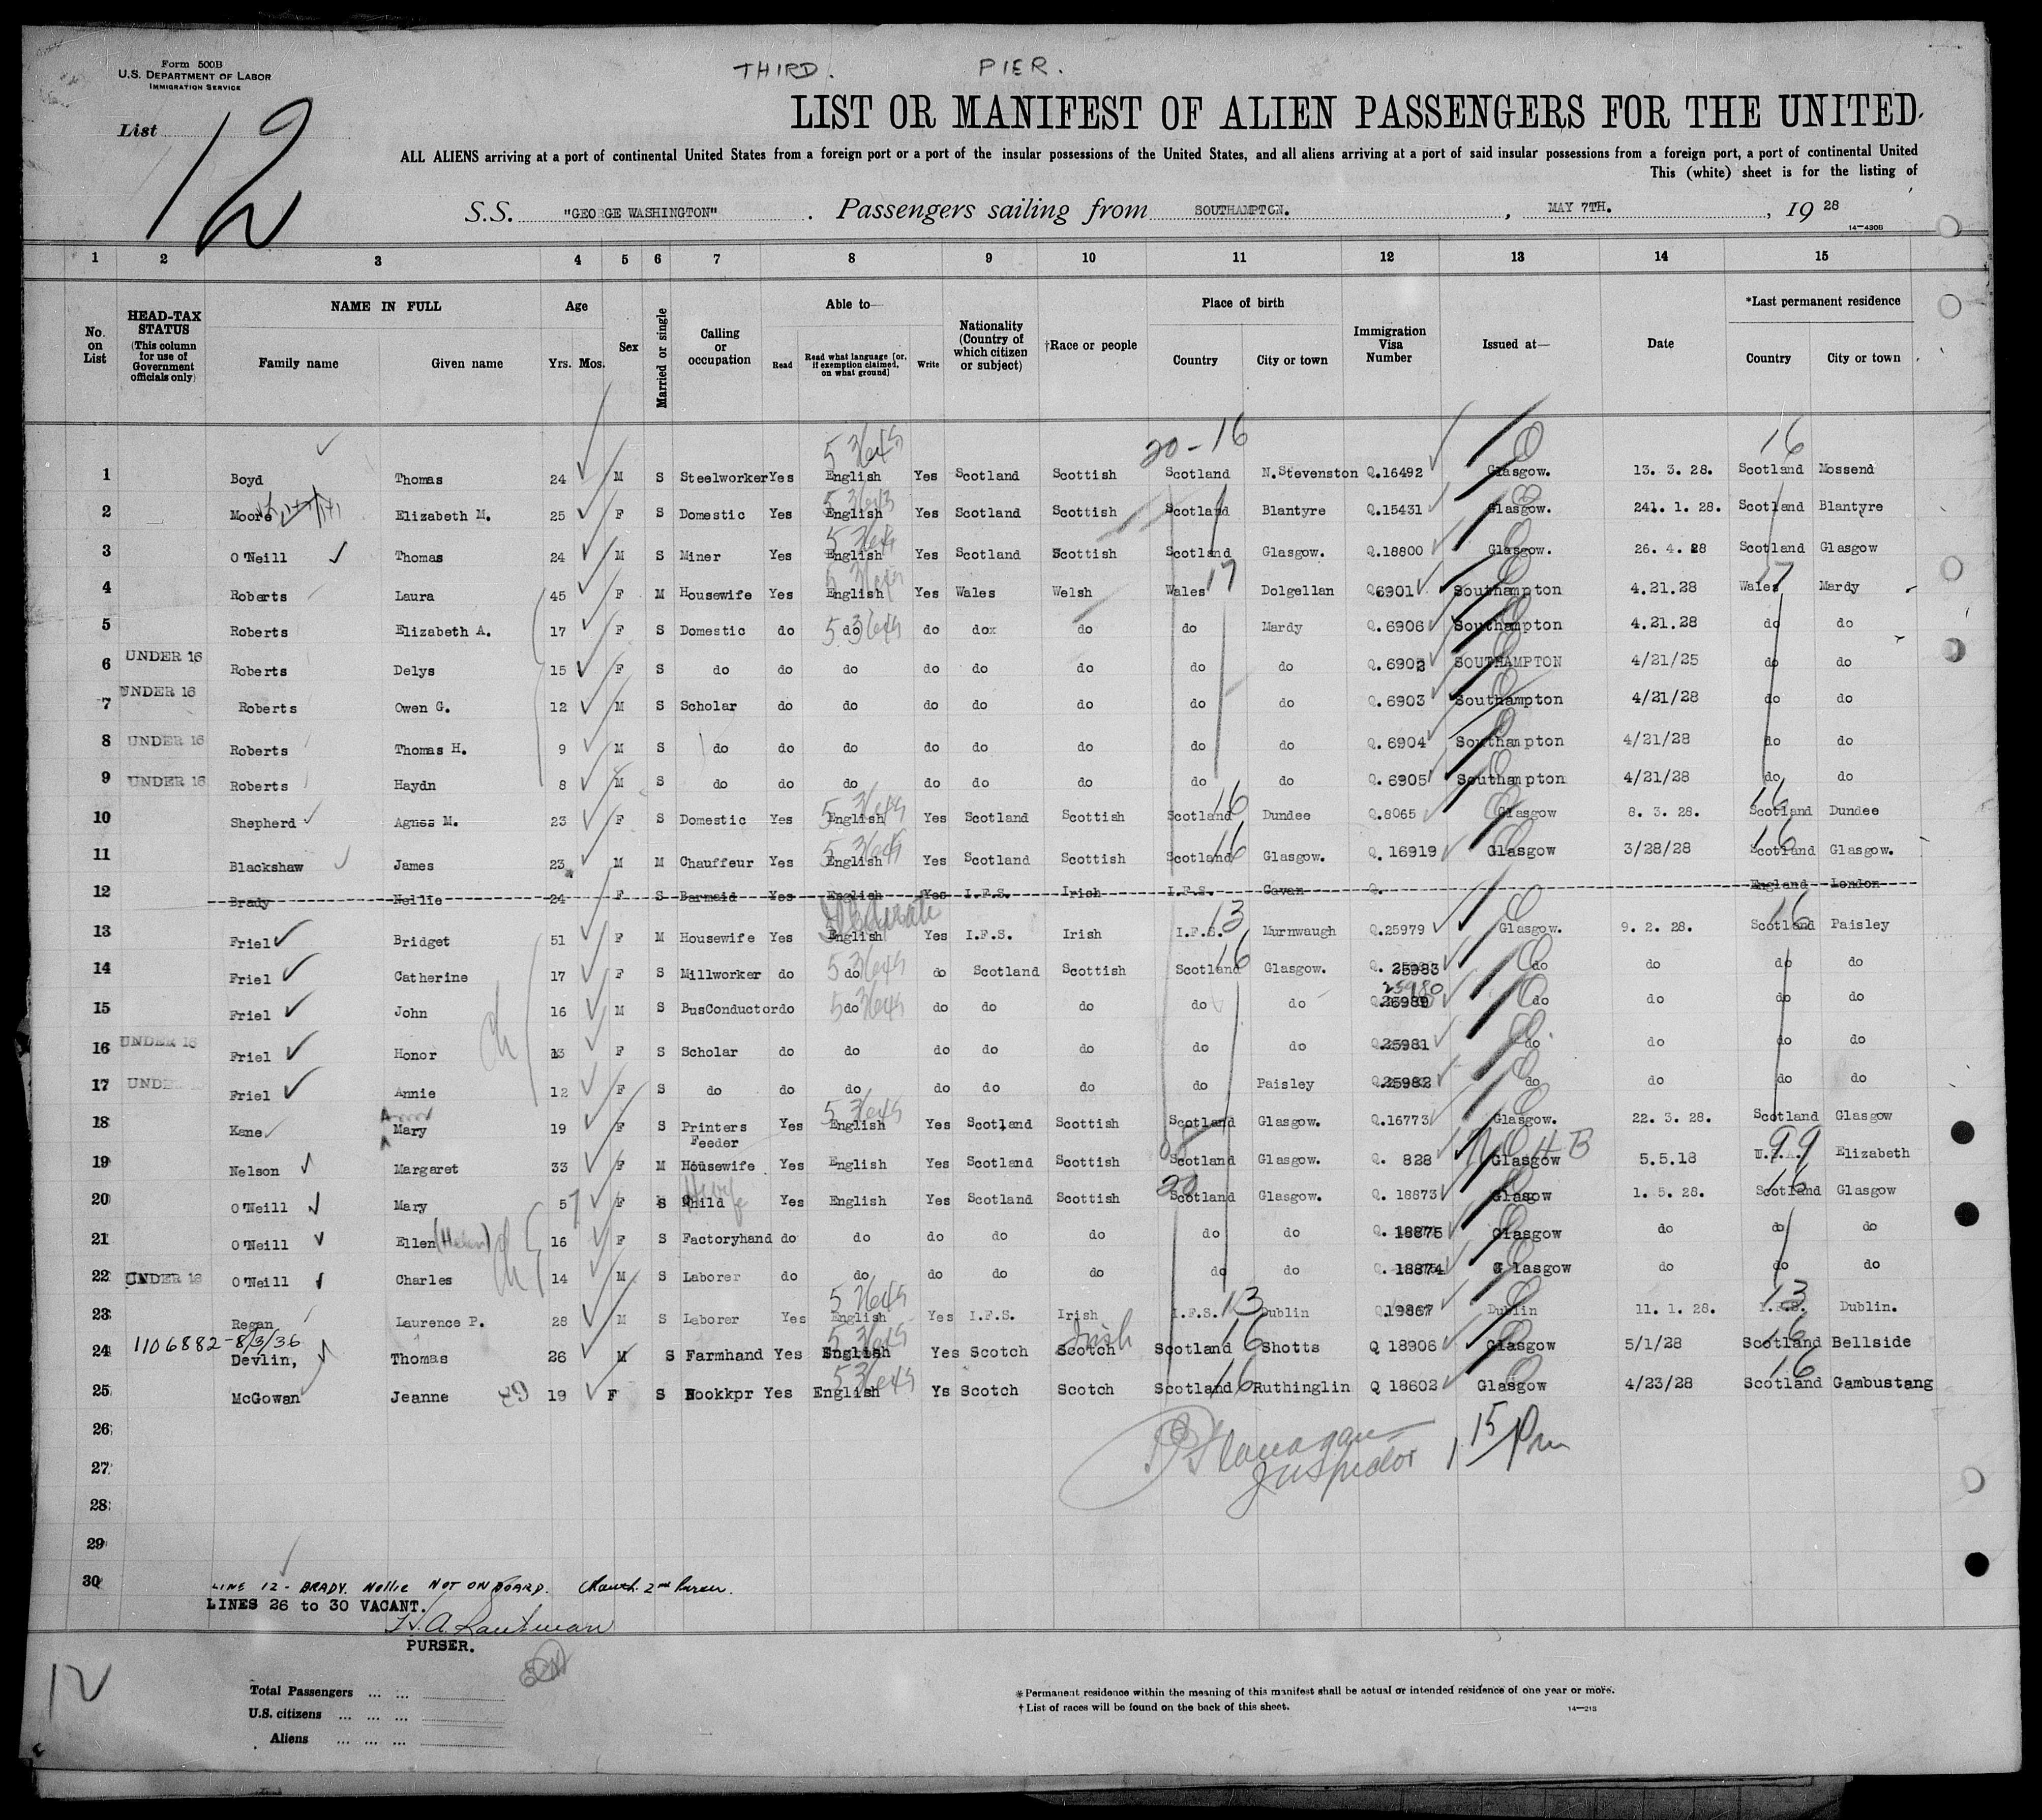 Form 500B
U.S. DEPARTMENT OF LABOR
IMMIGRATION SERVICE
THIRD. PIER.
LIST OR MANIFEST OF ALIEN PASSENGERS FOR THE UNITED
List 12
ALL ALIENS arriving at a port of continental United States from a foreign port or a port of the insular possessions of the United States, and all aliens arriving at a port of said insular possessions from a foreign port, a port of continental United
This (white) sheet is for the listing of
S.S. "GEORGE WASHINGTON". Passengers sailing from SOUTHAMPTON. , MAY 7TH. , 19 28
14—430B
1 2 3 4 5 6 7 8 9 10 11 12 13 14 15
No. on List HEAD-TAX STATUS (This column for use of Government officials only) NAME IN FULL Family name Given name Age Yrs. Mos. Sex Married or single Calling or occupation Able to— Read Read what language [or, if exemption claimed, on what ground] Write Nationality (Country of which citizen or subject) †Race or people Place of birth Country City or town Immigration Visa Number Issued at— Date *Last permanent residence Country City or town
20-16 16
1 Boyd Thomas 24 M S Steelworker Yes English Yes Scotland Scottish Scotland N.Stevenston Q.16492 Glasgow. 13. 3. 28. Scotland Mossend
2 Moore Elizabeth M. 25 F S Domestic Yes English Yes Scotland Scottish Scotland Blantyre Q.15431 Glasgow. 241. 1. 28. Scotland Blantyre
3 O'Neill Thomas 24 M S Miner Yes English Yes Scotland Scottish Scotland Glasgow. Q.18800 Glasgow. 26. 4. 28 Scotland Glasgow
4 Roberts Laura 45 F M Housewife Yes English Yes Wales Welsh Wales 17 Dolgellan Q6901 Southampton 4.21.28 Wales 17 Mardy
5 Roberts Elizabeth A. 17 F S Domestic do do do dox do do Mardy Q.6906 Southampton 4.21.28 do do
6 UNDER 16 Roberts Delys 15 F S do do do do do do do do Q.6902 SOUTHAMPTON 4/21/25 do do
7 UNDER 16 Roberts Owen G. 12 M S Scholar do do do do do do do Q.6903 Southampton 4/21/28 do do
8 UNDER 16 Roberts Thomas H. 9 M S do do do do do do do do Q.6904 Southampton 4/21/28 do do
9 UNDER 16 Roberts Haydn 8 M S do do do do do do do do Q.6905 Southampton 4/21/28 do do
10 Shepherd Agnes M. 23 F S Domestic Yes English Yes Scotland Scottish Scotland 16 Dundee Q.8065 Glasgow 8. 3. 28. Scotland 16 Dundee
11 Blackshaw James 23 M M Chauffeur Yes English Yes Scotland Scottish Scotland 16 Glasgow. Q. 16919 Glasgow 3/28/28 Scotland 16 Glasgow.
12 Brady Nellie 24 F S Barmaid Yes English Yes I.F.S. Irish I.F.S. Cavan Q. England London
13 Friel Bridget 51 F M Housewife Yes English Yes I.F.S. Irish I.F.S. 13 Murnwaugh Q.25979 Glasgow. 9. 2. 28. Scotland 16 Paisley
14 Friel Catherine 17 F S Millworker do do do Scotland Scottish Scotland 16 Glasgow. Q. 25983 do do do do
15 Friel John 16 M S BusConductor do do do do do do do 25980 do do do do
16 UNDER 16 Friel Honor 13 F S Scholar do do do do do do do Q.25981 do do do do
17 UNDE Friel Annie 12 F S do do do do do do do Paisley Q.25982 do do do do
18 Kane Mary 19 F S Printers Feeder Yes English Yes Scotland Scottish Scotland Glasgow. Q.16773 Glasgow. 22. 3. 28. Scotland Glasgow
19 Nelson Margaret 33 F M Housewife Yes English Yes Scotland Scottish Scotland Glasgow. Q. 828 Glasgow 5.5.18 99 Elizabeth
20 O'Neill Mary 57 F S Child Yes English Yes Scotland Scottish Scotland 20 Glasgow. Q. 18873 Glasgow 1. 5. 28. Scotland 16 Glasgow
21 O'Neill Ellen (Helen) 16 F S Factoryhand do do do do do do do Q. 18875 Glasgow do do do
22 UNDER 16 O'Neill Charles 14 M S Laborer do do do do do do do Q. 18874 Glasgow do do do
23 Regan Laurence P. 28 M S Laborer Yes English Yes I.F.S. Irish I.F.S. 13 Dublin Q.19867 Dublin 11. 1. 28. I.F.S. 13 Dublin.
1106882-8/3/36
24 Devlin, Thomas 26 M S Farmhand Yes English Yes Scotch Scotch Irish Scotland 16 Shotts Q 18906 Glasgow 5/1/28 Scotland 16 Bellside
25 McGowan Jeanne 19 F S Bookkpr Yes English Ys Scotch Scotch Scotland 16 Ruthinglin Q 18602 Glasgow 4/23/28 Scotland 16 Gambustang
26
27
28
29
30
Flanagan
Inspector
1 15 Pm
LINE 12 - BRADY. Nellie NOT ON BOARD. 2nd Purser.
LINES 26 to 30 VACANT.
PURSER.
12
Total Passengers ... ...
U.S. citizens ... ... ...
Aliens ... ... ...
*Permanent residence within the meaning of this manifest shall be actual or intended residence of one year or more.
†List of races will be found on the back of this sheet.
14—213